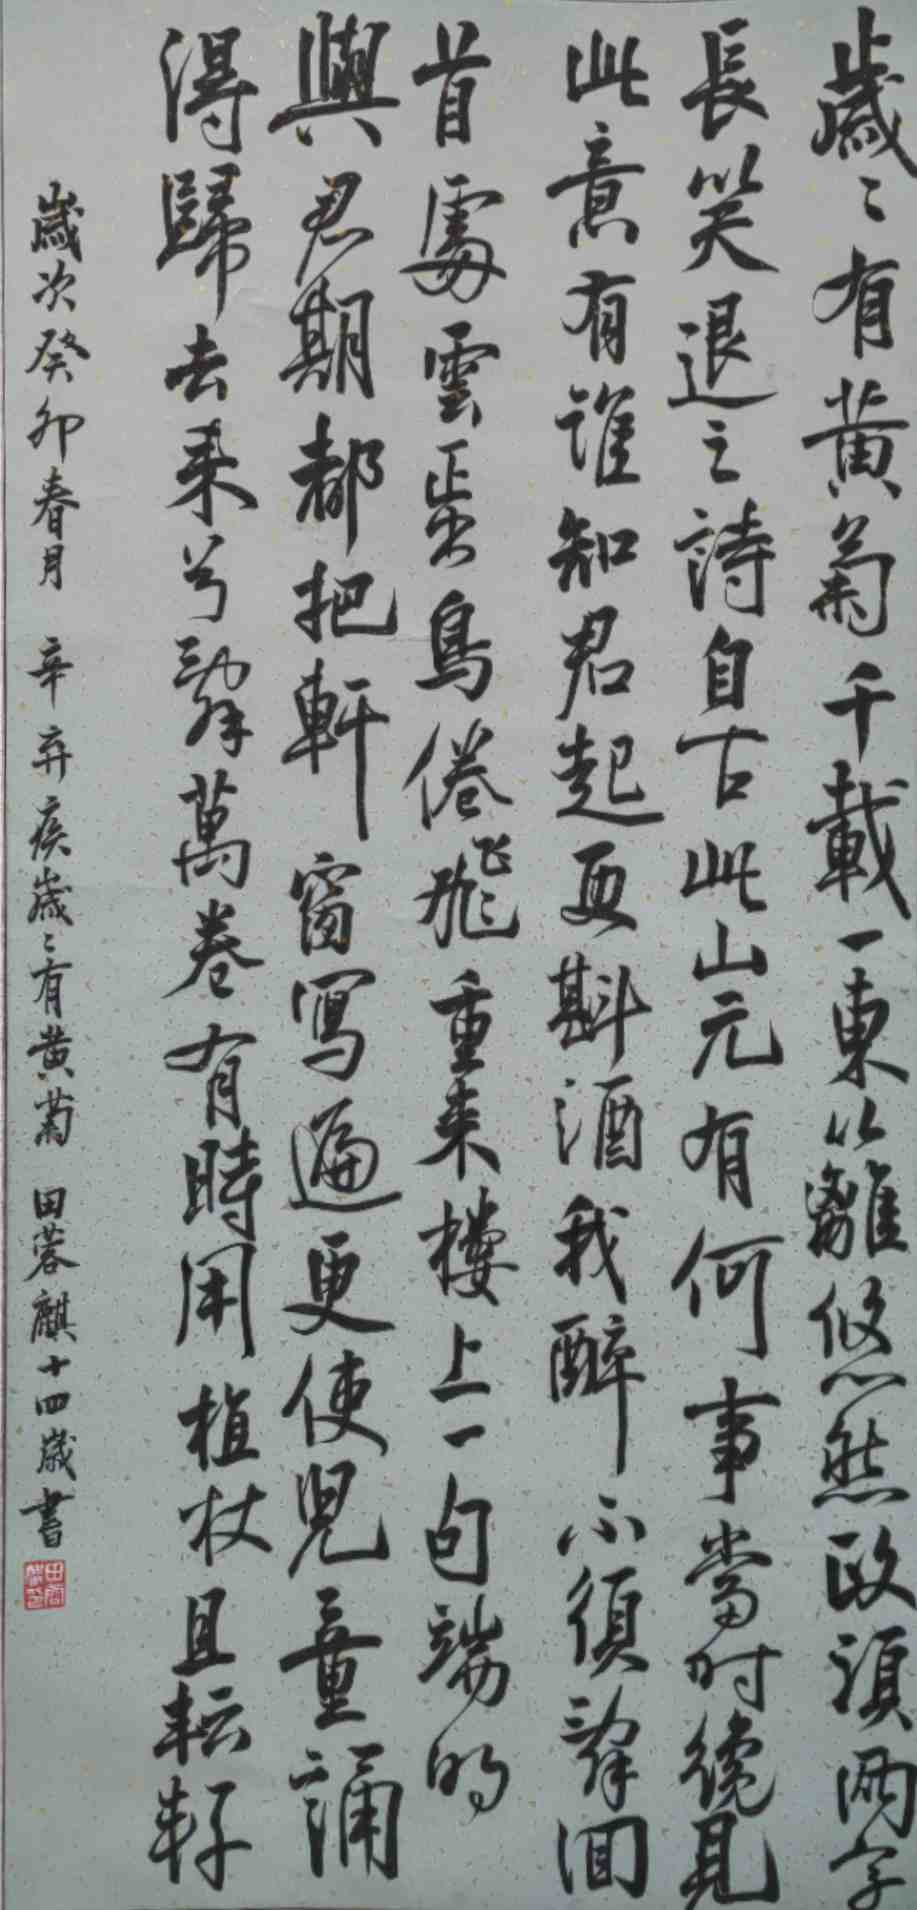 歲〻有黄菊千載一東籬悠然政須兩字
長笑退之詩自古此山元有何事當时後見
此意有誰知君起更斟酒我醉不須辭回
首處雲正出鳥倦飛重来樓上一句端的
與君期都把軒窗寫遍更使兒童誦
得歸去来兮辭萬卷有時用植杖且耘耔
歲次癸卯春月 辛弃疾歲〻有黄菊 田蓉麒十四歲書